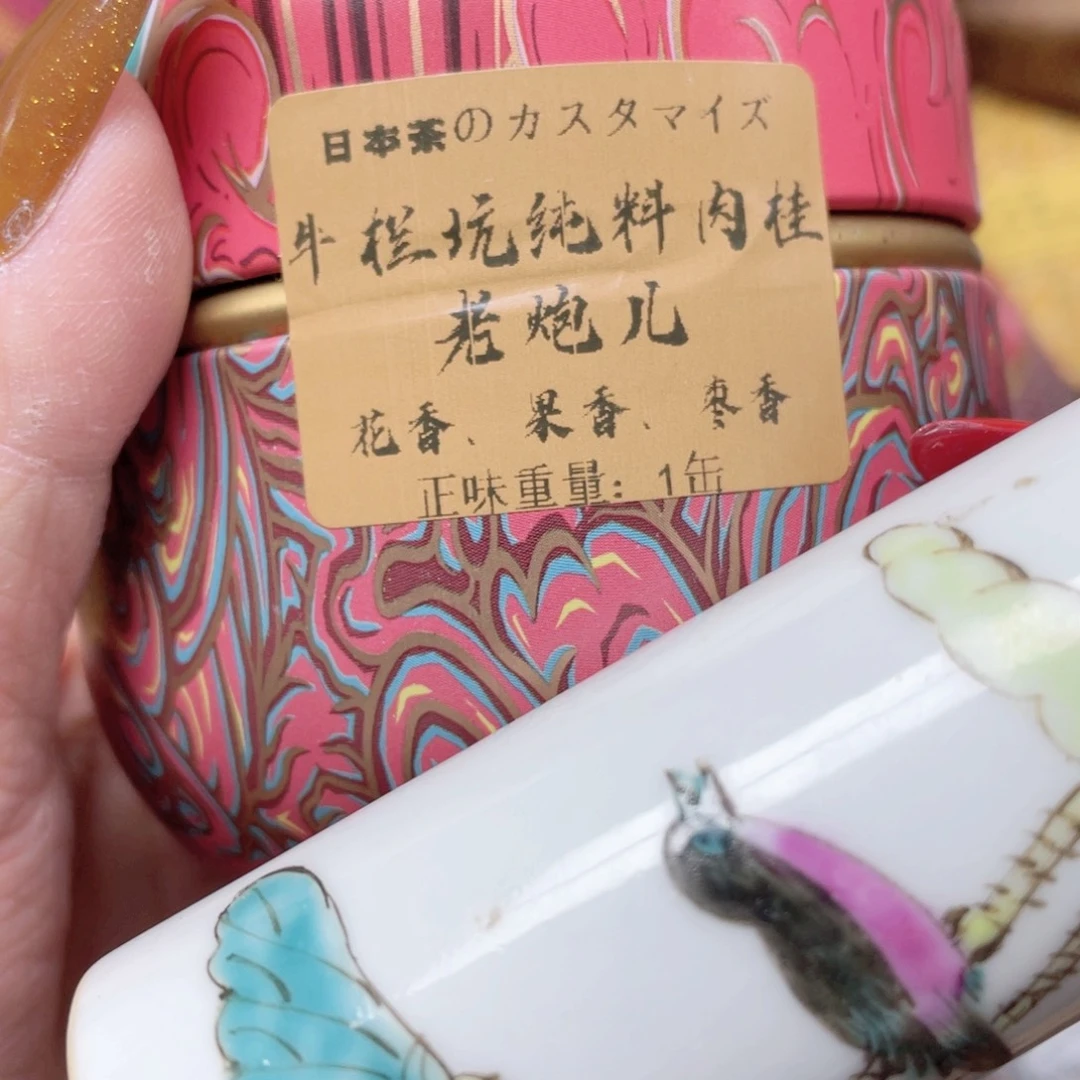 日本茶のカスタマイズ
牛栏坑纯料肉桂
老炮儿
花香、果香、枣香
正味重量：1缶